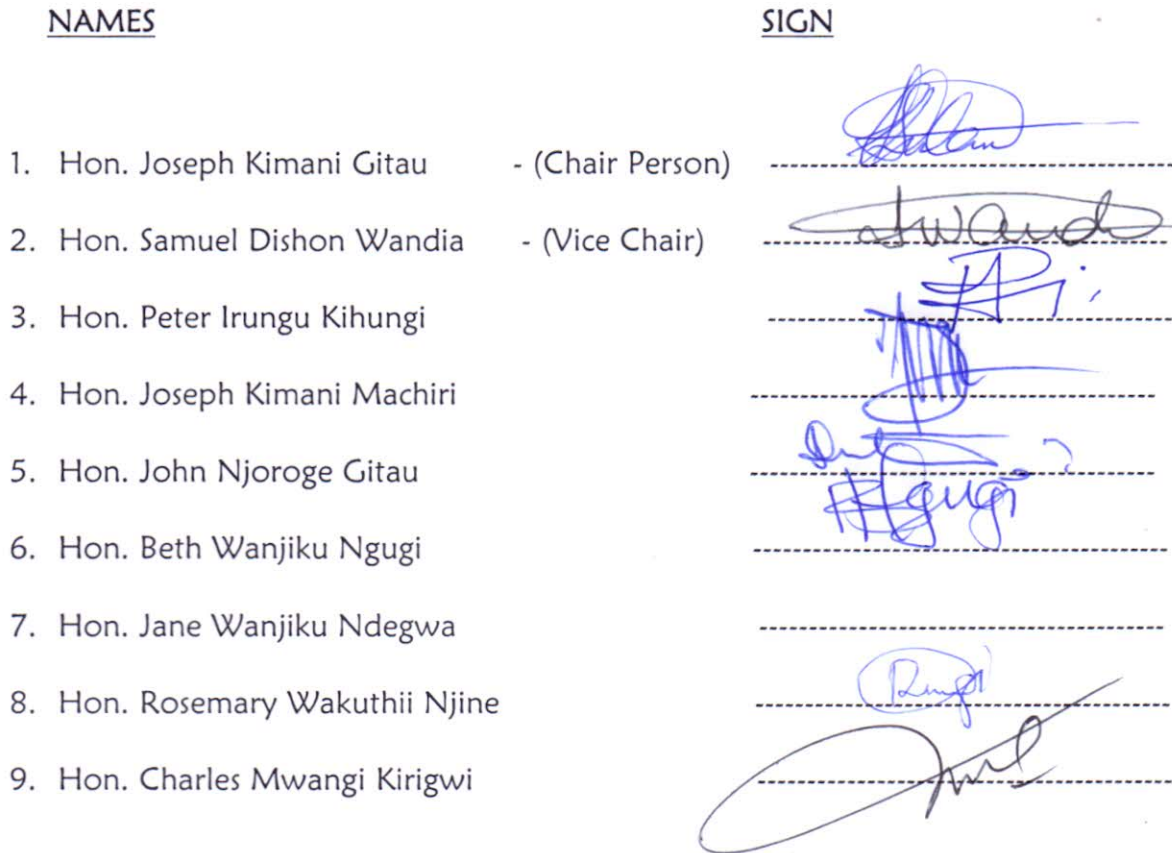 NAMES SIGN
1. Hon. Joseph Kimani Gitau - (Chair Person)
2. Hon. Samuel Dishon Wandia - (Vice Chair)
3. Hon. Peter Irungu Kihungi
4. Hon. Joseph Kimani Machiri
5. Hon. John Njoroge Gitau
6. Hon. Beth Wanjiku Ngugi
7. Hon. Jane Wanjiku Ndegwa
8. Hon. Rosemary Wakuthii Njine
9. Hon. Charles Mwangi Kirigwi